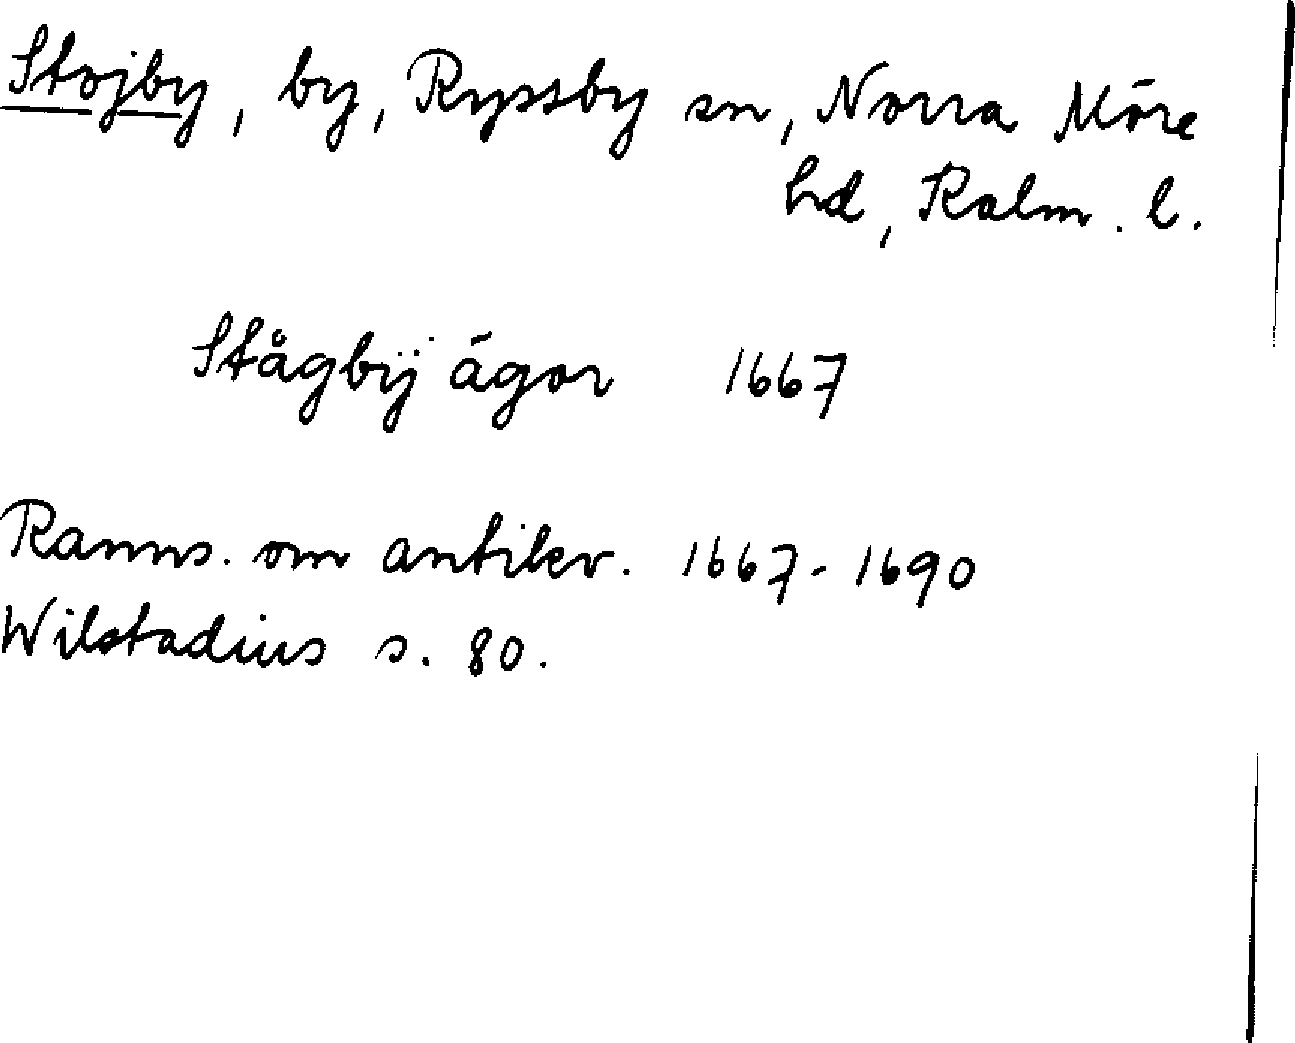 Stojby, by, Ryssby sn, Norra Möre
hd, Kalm. l.
Stågbÿ ägor 1667
Ranns. om antikv. 1667-1690
Wilstadius s. 80.